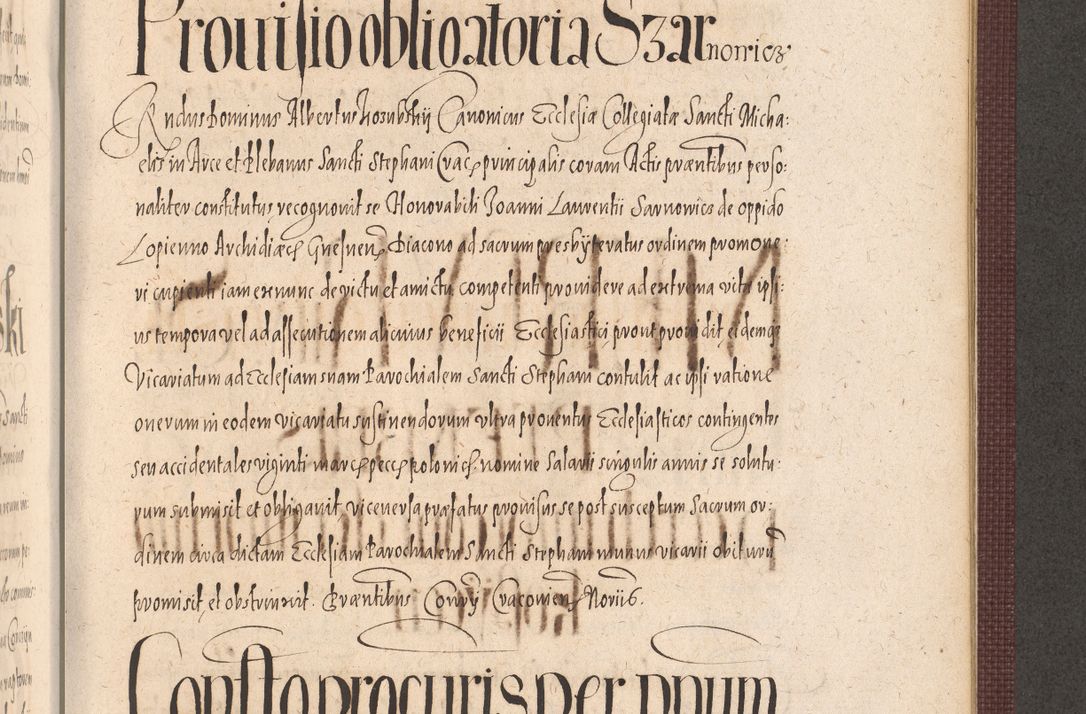 Prouisio obligatoria Szarnowicz
Rndus Dominus Albertus Hosubskij Canonicus Ecclesiæ Collegiatæ Sancti Micha:
elis in Arce et Plebanus Sancti Stephani Crac principalis coram Actis præntibus perso:
naliter constitutus recognovit se Honorabili Joanni Laurentii Sarnowicz de oppido
Lopienno Archidiæc Gnesnen Diacono ad sacrum presbyteratus ordinem promove:
ri cupienti iam ex nunc de victu et amictu competenti providere ad extrema vitæ ipsi:
us tempora vel ad assecutionem alicuius beneficii Ecclesiastici prout providit eidemq
Vicariatum ad Ecclesiam suam Parochialem Sancti Stephani contulit ac ipsi ratione
onerum in eodem vicariatu sustinendorum ultra proventus Ecclesiasticos contingentes
seu accidentales viginti march pecch polonich nomine Salarii singulis annis se solutu:
rum submisit et obligavit, viceversa præfatus provisus se post susceptum Sacrum or:
dinem circa dictam Ecclesiam Parochialem Sancti Stephani munus vicarii obiturū
promisit et obstrinxit. Præntibus Cracovien Noriis.
Consto procuris per dnum